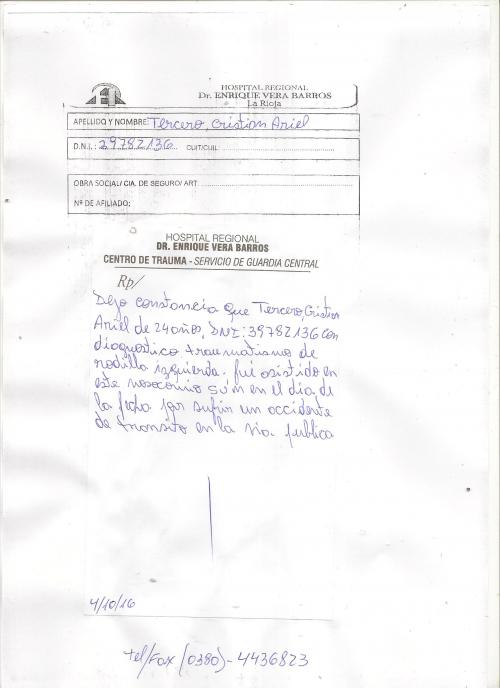 HOSPITAL REGIONAL
Dr. ENRIQUE VERA BARROS
La Rioja
APELLIDO Y NOMBRE: Tercero, Cristian Ariel
D.N.I.: 29782136 CUIT/CUIL:
OBRA SOCIAL/ CIA. DE SEGURO/ ART
Nº DE AFILIADO:
HOSPITAL REGIONAL
DR. ENRIQUE VERA BARROS
CENTRO DE TRAUMA - SERVICIO DE GUARDIA CENTRAL
Rp/
Dejo constancia que Tercero, Cristian
Ariel de 24 años, DNI: 39782136 con
diagnostico traumatismo de
rodilla izquierda. fué asistido en
este nosocomio en el día de
la fecha por sufrir un accidente
de transito en la via publica
4/10/16
tel/Fax (0380)-4436823